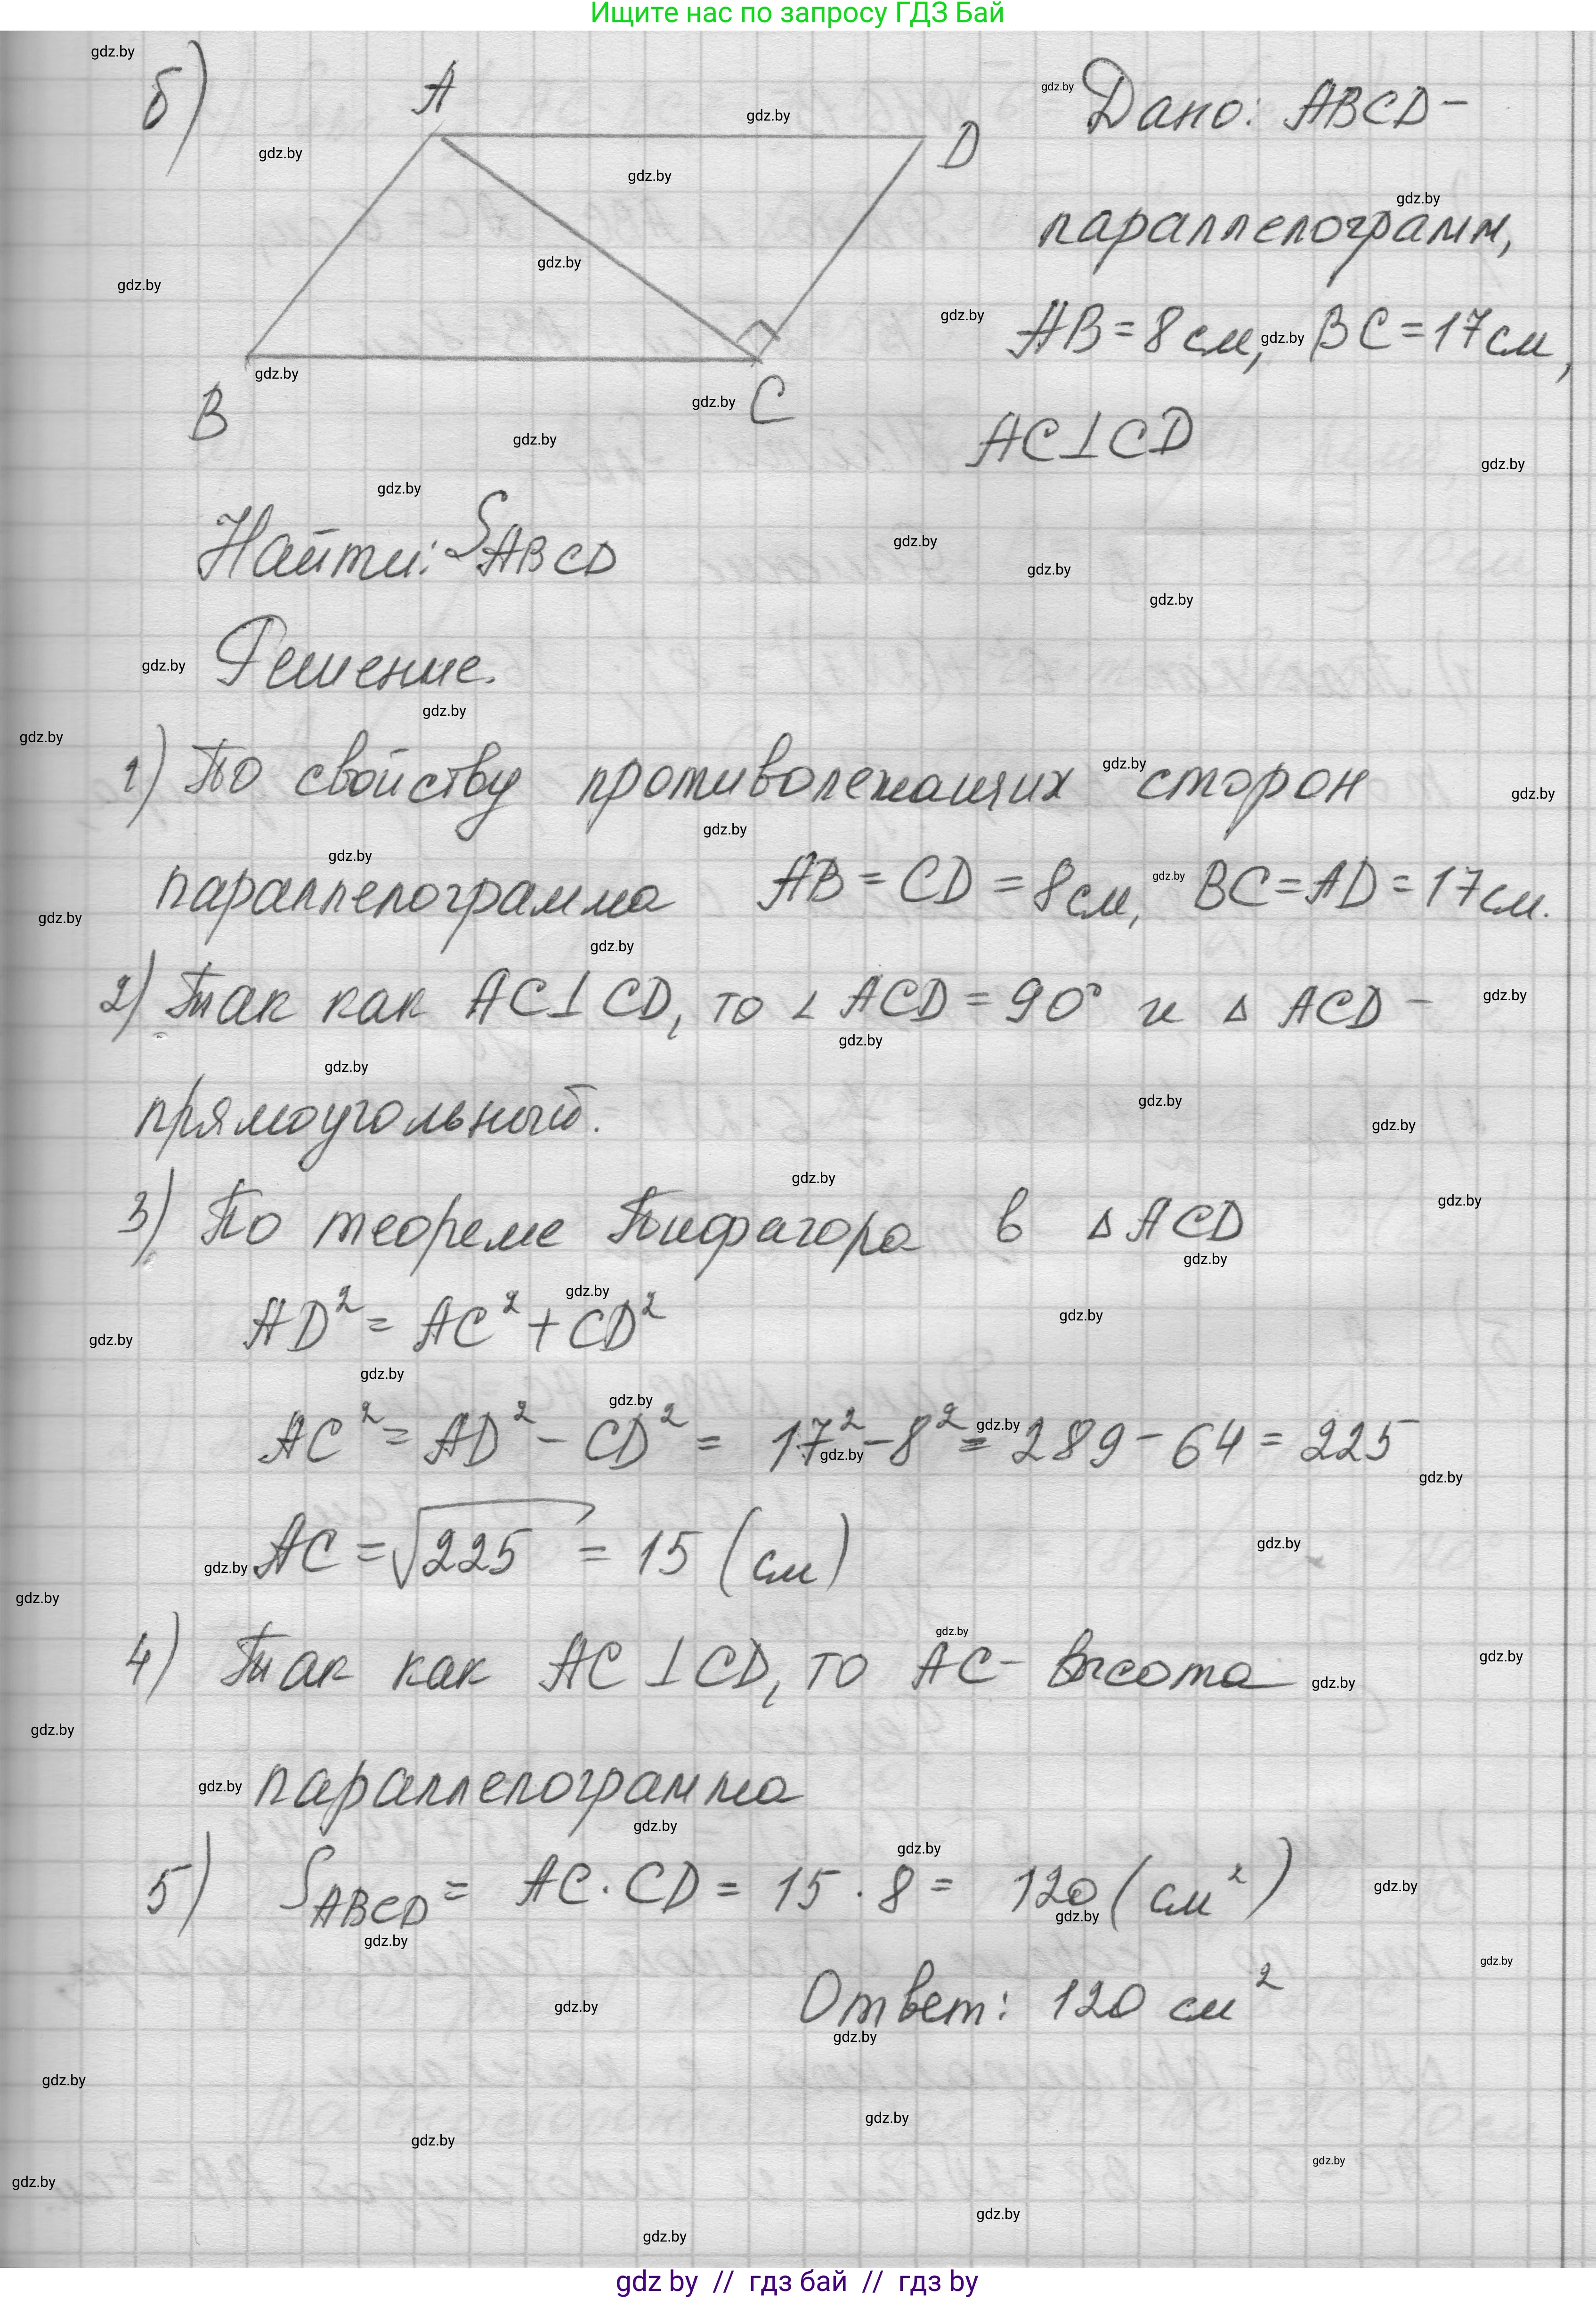 Ищите нас по запросу ГДЗ Бай
б)
A
D
B
C
Дано: ABCD –
параллелограмм,
AB = 8 см, BC = 17 см,
AC ⊥ CD
Найти: S ABCD
Решение.
1) По свойству противолежащих сторон
параллелограмма AB = CD = 8 см, BC = AD = 17 см.
2) Так как AC ⊥ CD, то ∠ ACD = 90° и Δ ACD –
прямоугольный.
3) По теореме Пифагора в Δ ACD
AD² = AC² + CD²
AC² = AD² – CD² = 17² – 8² = 289 – 64 = 225
AC = √225 = 15 (см)
4) Так как AC ⊥ CD, то AC – высота
параллелограмма
5) S ABCD = AC · CD = 15 · 8 = 120 (см²)
Ответ: 120 см²
gdz.by
gdz by // гдз бай // гдз by